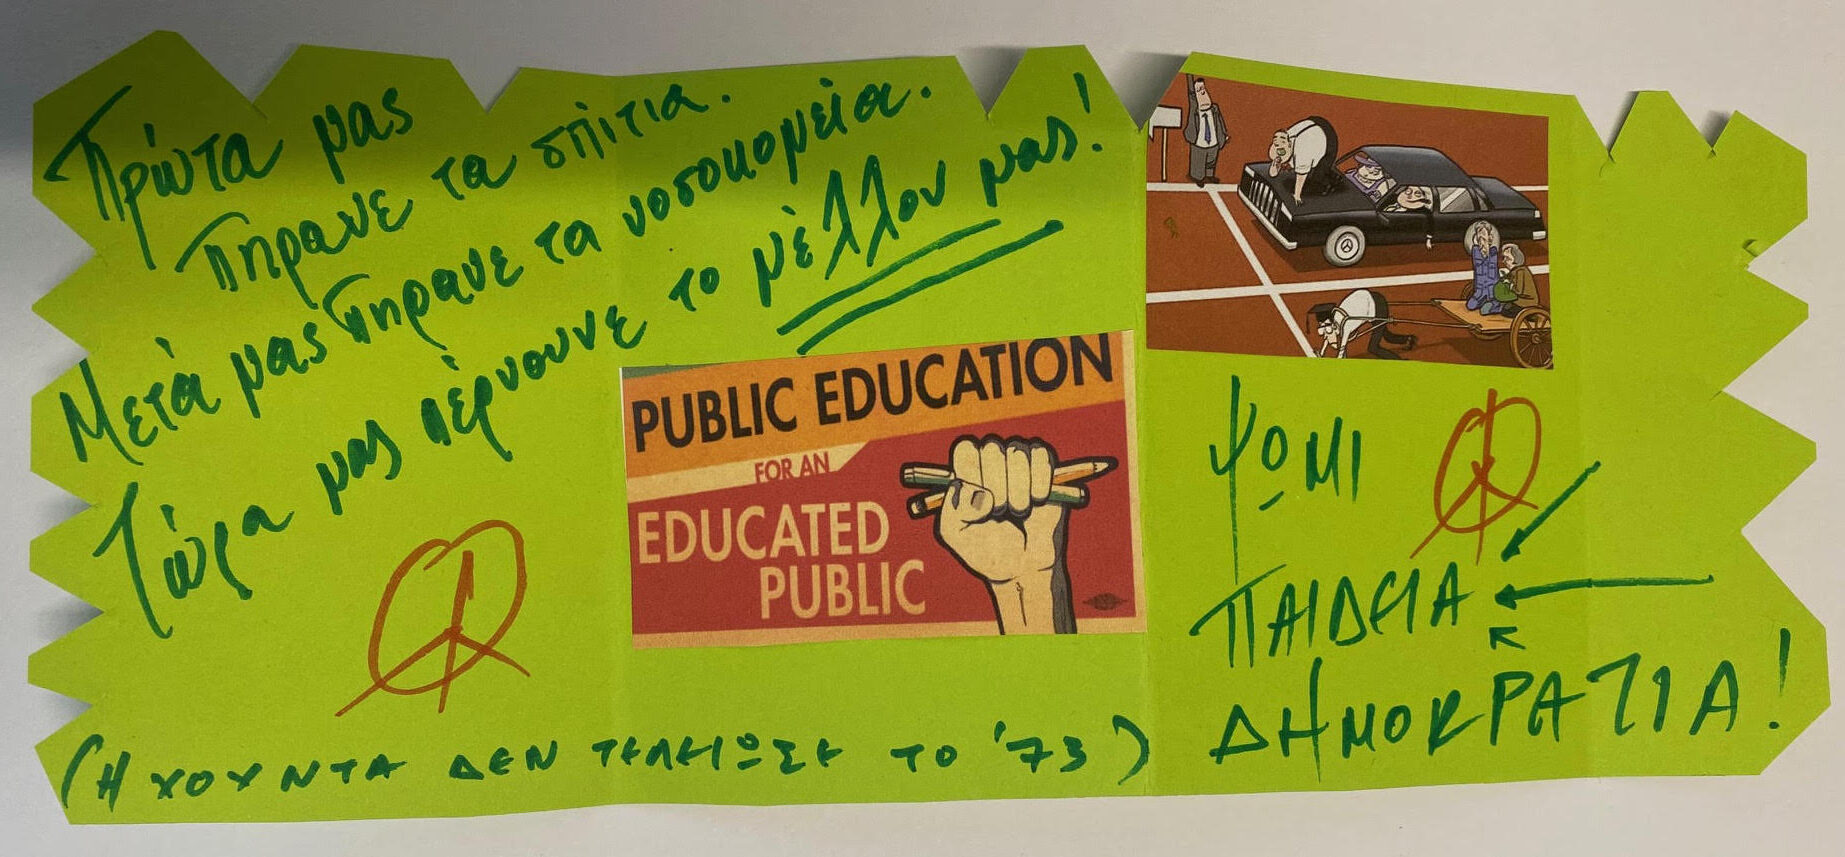 Πρώτα μας
πηρανε τα σπίτια.
Μετά μας πηρανε τα νοσοκομεία.
Τώρα μας πέρνουνε το μέλλον μας!
PUBLIC EDUCATION
FOR AN
EDUCATED
PUBLIC
(Η ΧΟΥΝΤΑ ΔΕΝ ΤΕΛΕΙΩΣΕ ΤΟ '73)
ΨΩΜΙ
ΠΑΙΔΕΙΑ
ΔΗΜΟΚΡΑΤΙΑ!